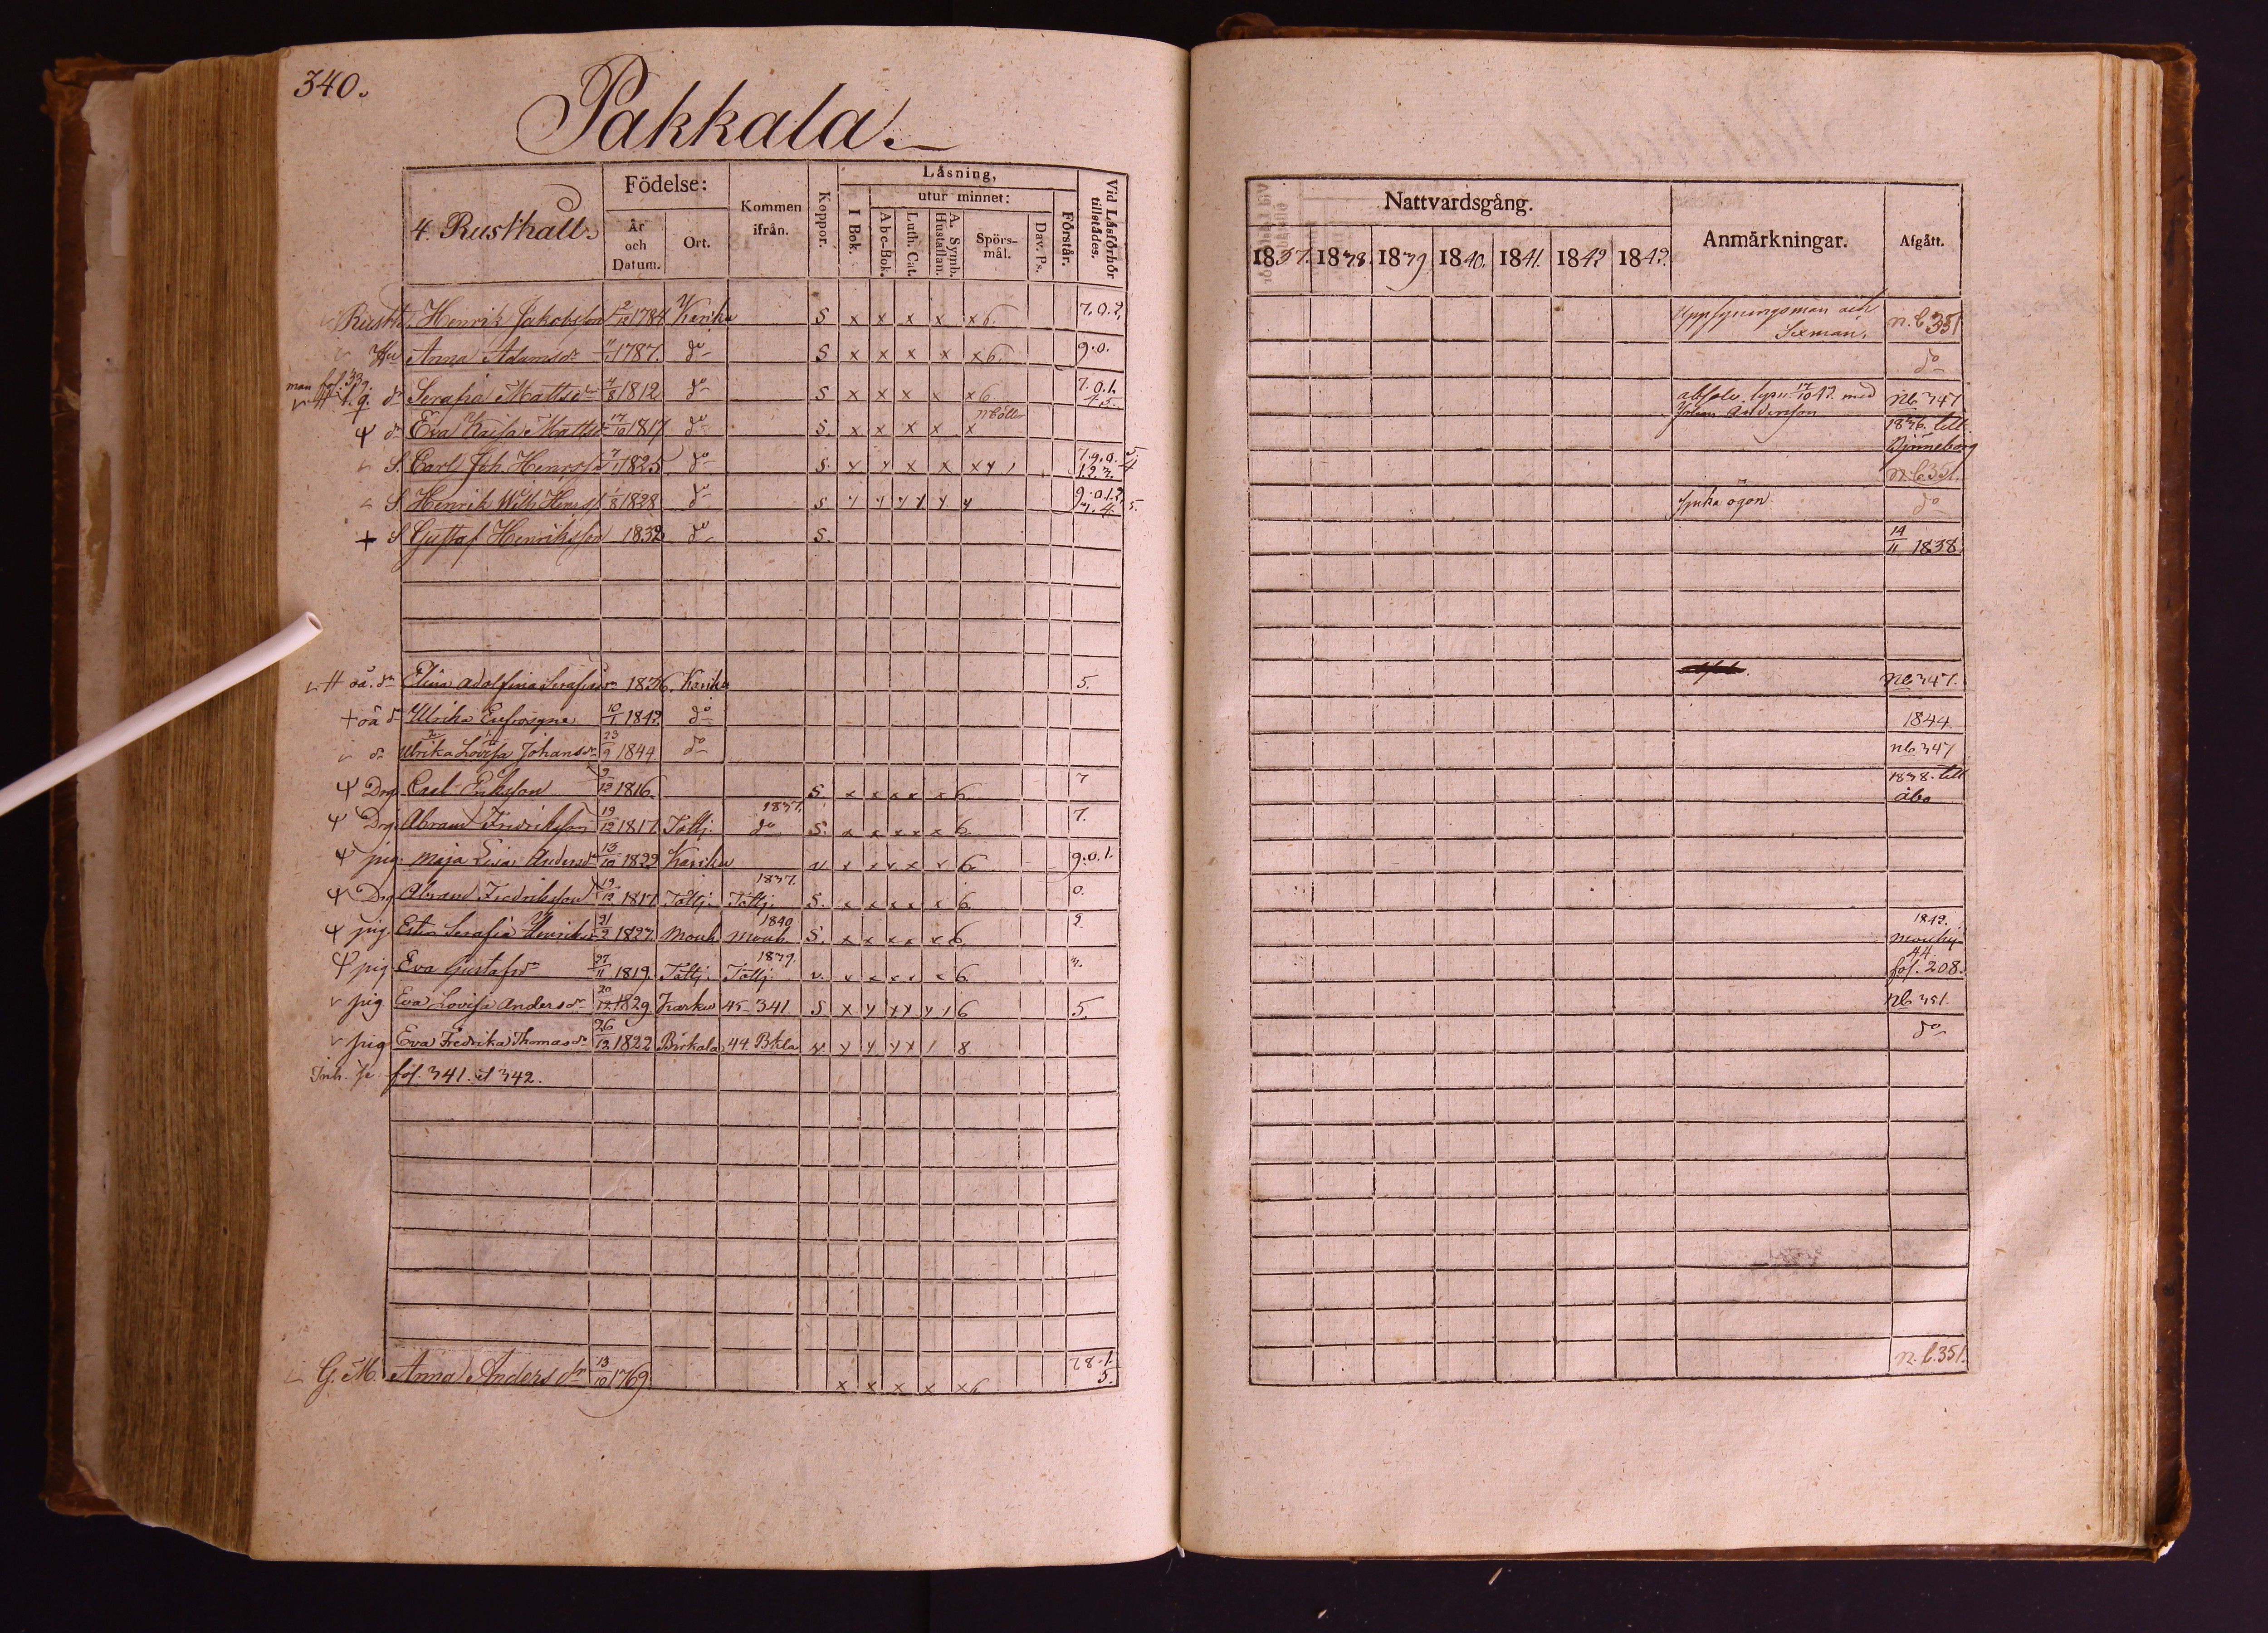 340.
Pakkala.
4. Rusthåll.
Födelse:
År och Datum.
Ort.
Kommen ifrån.
Koppor.
Läsning,
I Bok.
utur minnet:
Abc-Bok.
Luth. Cat.
A. Symb. Hustaflan.
Spörs-mål.
Dav. Ps.
Förstår.
Vid Läsförhör tillstädes.
Nattvardsgång.
1837. 1838. 1839 1840. 1841. 1842 1842.
Anmärkningar.
Afgått.
Rusth. Henrik Jakobsson 2/12 1784 Karika S x x x x x 6. 7.0.2 Uppsyningsman och Sexman. n.b 351
Hu Anna Adamsdr 1787. do S x x x x x 6. 9.0. do
man fol. 339.
dr Serafia Mattsdr 4/8 1812 do S x x x x x 6 7.0.1. 4.5. absolv. lyst 17/10 42 med Johan Andersson nb 347
dr Eva Kaisa Mattsdr 17/10 1817 do S. x x x x x 1836. till Björneborg
S. Carl Joh. Henrsson 7/1 1825 do S. 7.9.0. 1.2.3. 5. 4 n.b 351.
S Henrik Wilh. Henrss. 1/8 1828 do S 9.0.1.2. 3.4. 5. sjuka ögon do
+ S Gustaf Henriksson 1832 do S. 14/11 1838.
oä. dr Elina Adolfina Serafiasdr 1836. Karika 5. nb 347.
+ oä dr Ulrika Eufrosyne 10/1 1842 do 1844.
dr Ulrika Lovisa Johansdr 23/9 1844 do nb 347
Drg. Carl Eriksson 9/12 1816. S x x x x x 6 7 1838. till åbo
Drg. Abram Fredriksson 19/12 1817 Töttj. 1837. do S. x x x x x 6. 7.
pig. Maja Lisa Andersdr 13/10 1822 Karika v x x x x x 6 9.0.1.
Drg Abram Fredriksson 19/12 1817 Töttj. 1837. Töttj. S. x x x x x 6 0.
pig. Ester Serafia Henriksdr 21/2 1827 Mouh. 1840 Mouh. S. x x x x x 6. 2 1842. Mouhij.
pig Eva Gustafsdr 27/11 1819. Töttj. 1839. Töttj. v. x x x x x 6. 3. 44. fol. 208.
pig. Eva Lovisa Andersdr 20/12 1829 Karku 45-341 S 6 5. nb 351.
pig Eva Fredrika Thomasdr 26/12 1822 Birkala 44. Bkla v 8 do
Inh. se fol. 341. et 342.
G. M. Anna Andersdr 13/10 1769. x x x x x 6 7.8.1. 5. n.b.351.